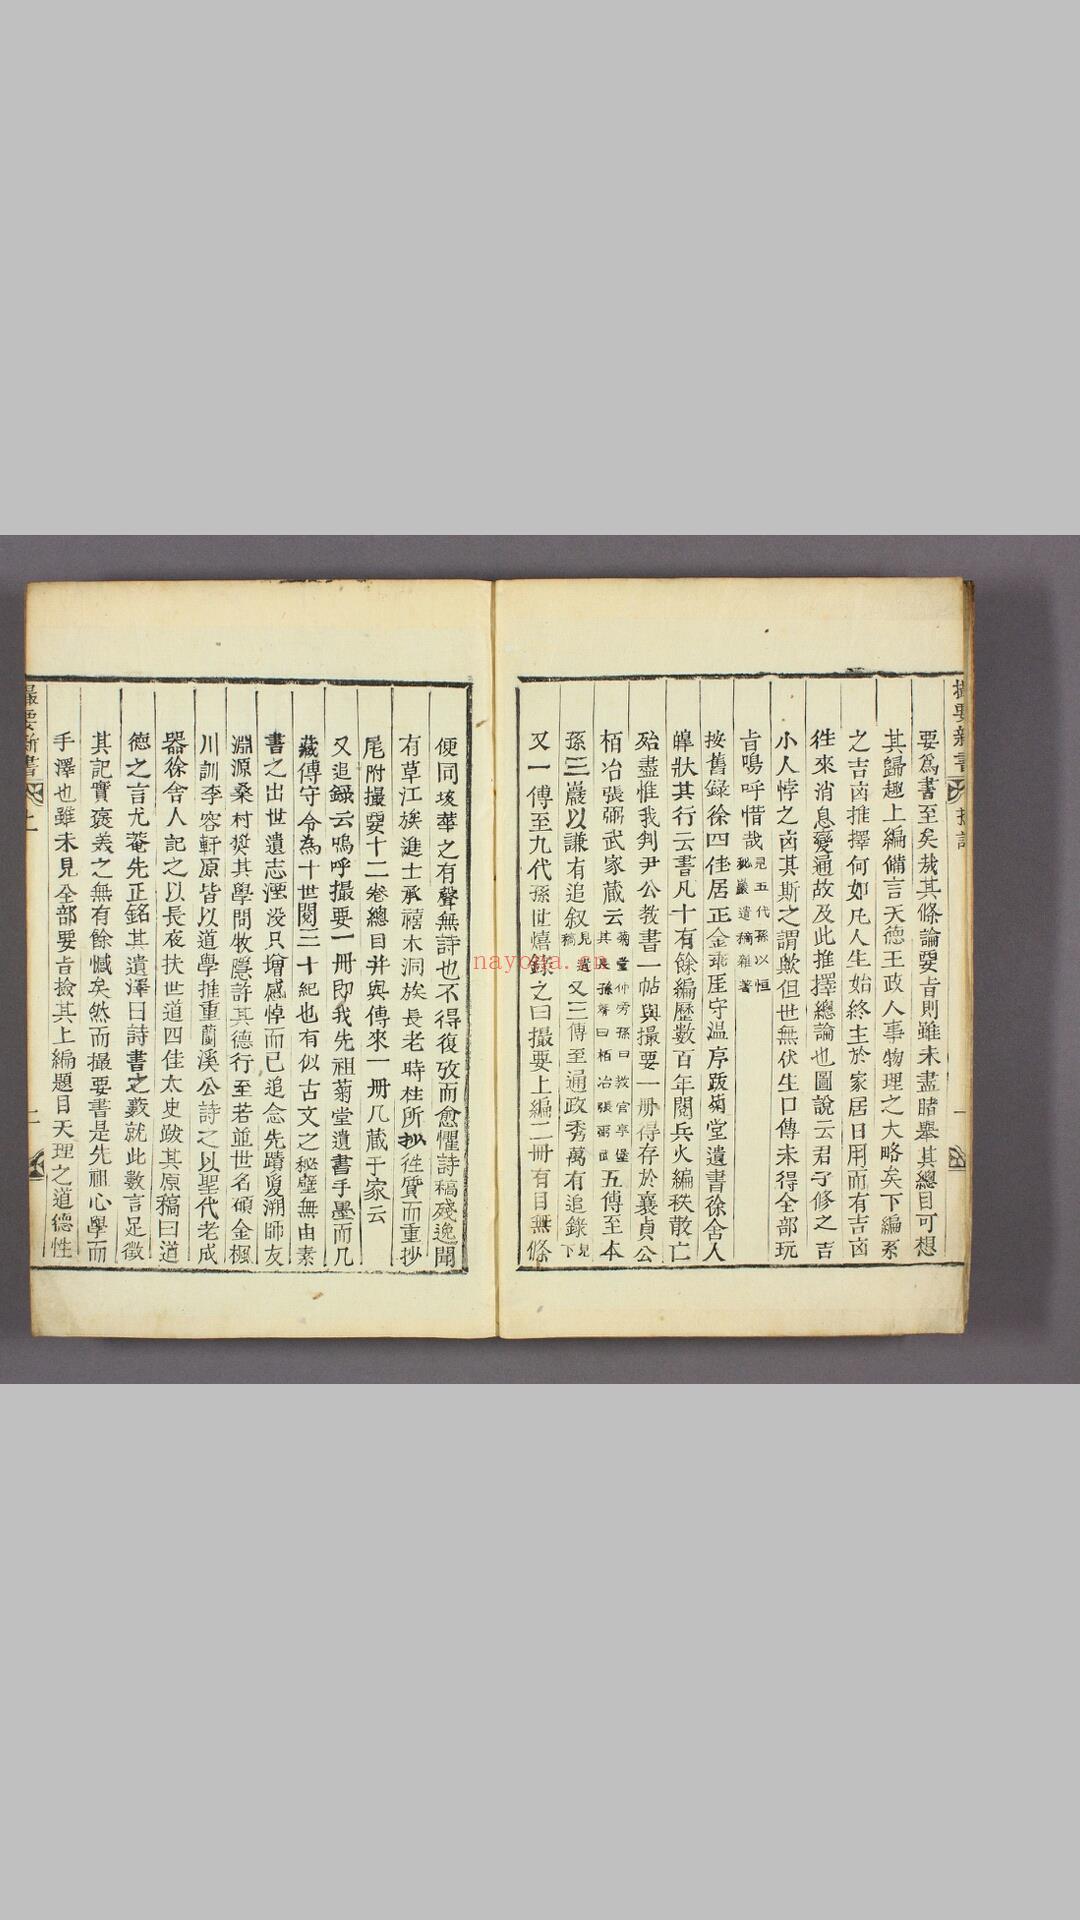 要爲書至矣哉其條論要旨則雖未盡睹舉其總目可想
其歸趣上編備言天德王政人事物理之大略矣下編系
之吉凶推擇何如凡人生始終主於家居日用而有吉凶
徃來消息變通故及此推擇總論也圖說云君子修之吉
小人悖之凶其斯之謂歟但世無伏生口傳未得全部玩
旨嗚呼惜哉
見五代孫以恒
秕巖遺稿雜著
按舊錄徐四佳居正金乖厓守溫序跋菊堂遺書徐舍人
皥狀其行云書凡十有餘編歷數百年閱兵火編秩散亡
殆盡惟我判尹公教書一帖與撮要一冊得存於襄貞公
栢冶張弼武家藏云
菊堂仲旁孫曰教官亭堡
其長孫脊曰栢冶張弼武
五傳至本
孫三巖以謙有追叙
見遺
稿
又三傳至通政秀萬有追錄
見
下
又一傳至九代孫世熺錄之曰撮要上編二冊有目無條
便同垓華之有聲無詩也不得復攷而愈懼詩稿殘逸聞
有草江族進士承禧木洞族長老時柱所抄徃質而重抄
尾附撮要十二卷總目并與傳來一冊几藏于家云
又追錄云嗚呼撮要一冊即我先祖菊堂遺書手墨而几
藏傳守今為十世閱三十紀也有似古文之秘壁無由素
書之出世遺志湮没只增感悼而已追念先蹟夐溯師友
淵源桑村奬其學問牧隱許其德行至若並世名碩金楓
川訓李容軒原皆以道學推重蘭溪公詩之以聖代老成
器徐舍人記之以長夜扶世道四佳太史跋其原稿曰道
德之言尤菴先正銘其遺澤曰詩書之藪就此數言足徵
其記實褒美之無有餘憾矣然而撮要書是先祖心學而
手澤也雖未見全部要旨撿其上編題目天理之道德性
撮要新書
撮要新書
nayona.cn